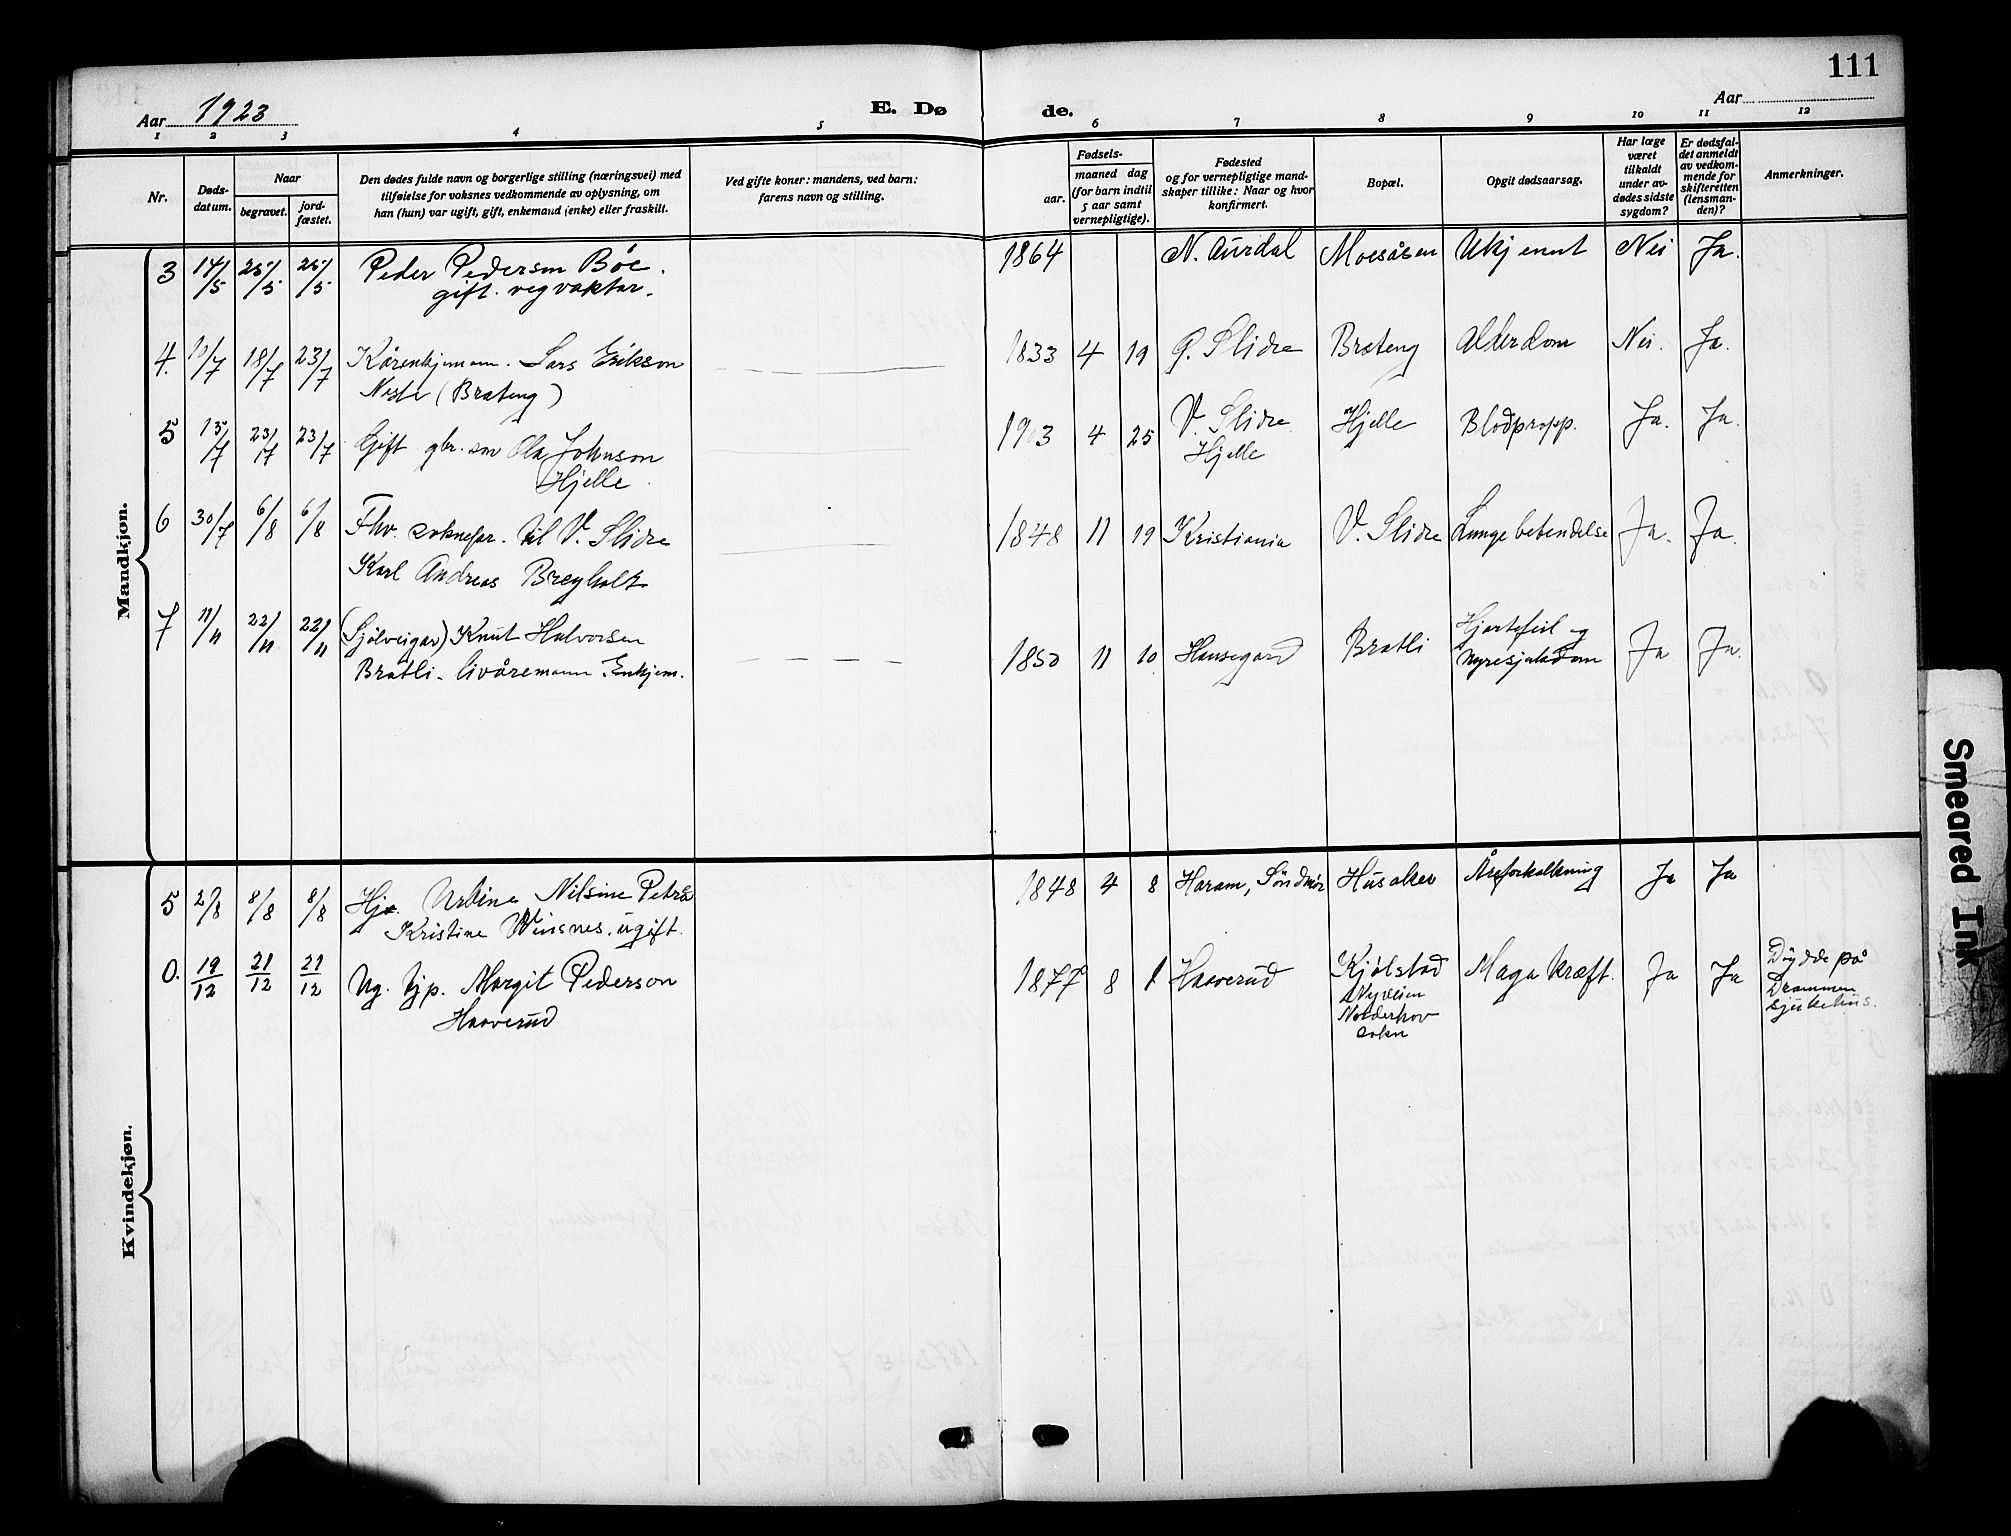 111
Aar 1923
E. Dø
de.
Aar
1 2 3 4 5 6 7 8 9 10 11 12
Nr.
Døds-
datum.
Naar
begravet.
jord-
fæstet.
Den dødes fulde navn og borgerlige stilling (næringsvei) med
tilføielse for voksnes vedkommende av oplysning, om
han (hun) var ugift, gift, enkemand (enke) eller fraskilt.
Ved gifte koner: mandens, ved barn:
farens navn og stilling.
Fødsels-
aar.
maaned dag
(for barn indtil
5 aar samt
vernepligtige).
Fødested
og for vernepligtige mand-
skaper tillike: Naar og hvor
konfirmert.
Bopæl.
Opgit dødsaarsag.
Har læge
været
tilkaldt
under av-
dødes sidste
sygdom?
Er dødsfal-
det anmeldt
av vedkom-
mende for
skifteretten
(lensman-
den)?
Anmerkninger.
Mandkjøn.
3 14/5 25/5 25/5 Peder Pedersen Bøe. 1864 N. Aurdal Moesåsen Ukjennt Nei Ja.
gift. vegvaktar.
4. 10/7 18/7 23/7 Kårenkjemann. Lars Erikson 1833 4 19 Ø. Slidre Brateng Alderdom Nei. Ja.
Neste (Brateng)
5 15/7 23/7 23/7 Gift gbr. son Ola Johnson 1903 4 25 V. Slidre Hjelle Blodpropp. Ja. Ja.
Hjelle. Hjelle
6 30/7 6/8 6/8 Fhv. soknepr. til V. Slidre 1848 11 19 Kristiania V. Slidre Lungebetendelse Ja. Ja.
Karl Andreas Bregholt
7 11/11 22/11 22/11 (Sjølveigar) Knut Halvorsen 1850 11 10 Hausegard Bratli Hjartefeil og
Bratli. livåremann. Enkjem. nyresjukdom Ja Ja.
Kvindekjøn.
5 2/8 8/8 8/8 Hj. Urbine Nilsine Petra 1848 4 8 Haram, Söndmör Husaker Åreforkalkning Ja Ja
Kristine Winsnes. ugift.
0. 19/12 21/12 21/12 Ug. tjp. Margit Pederson 1877 8 1 Haaverud Kjølstad Magakræft. Ja Ja Døydde på
Haaverud Nyveien Drammen
Norderhov sjukehus.
sokn
Smeared Ink